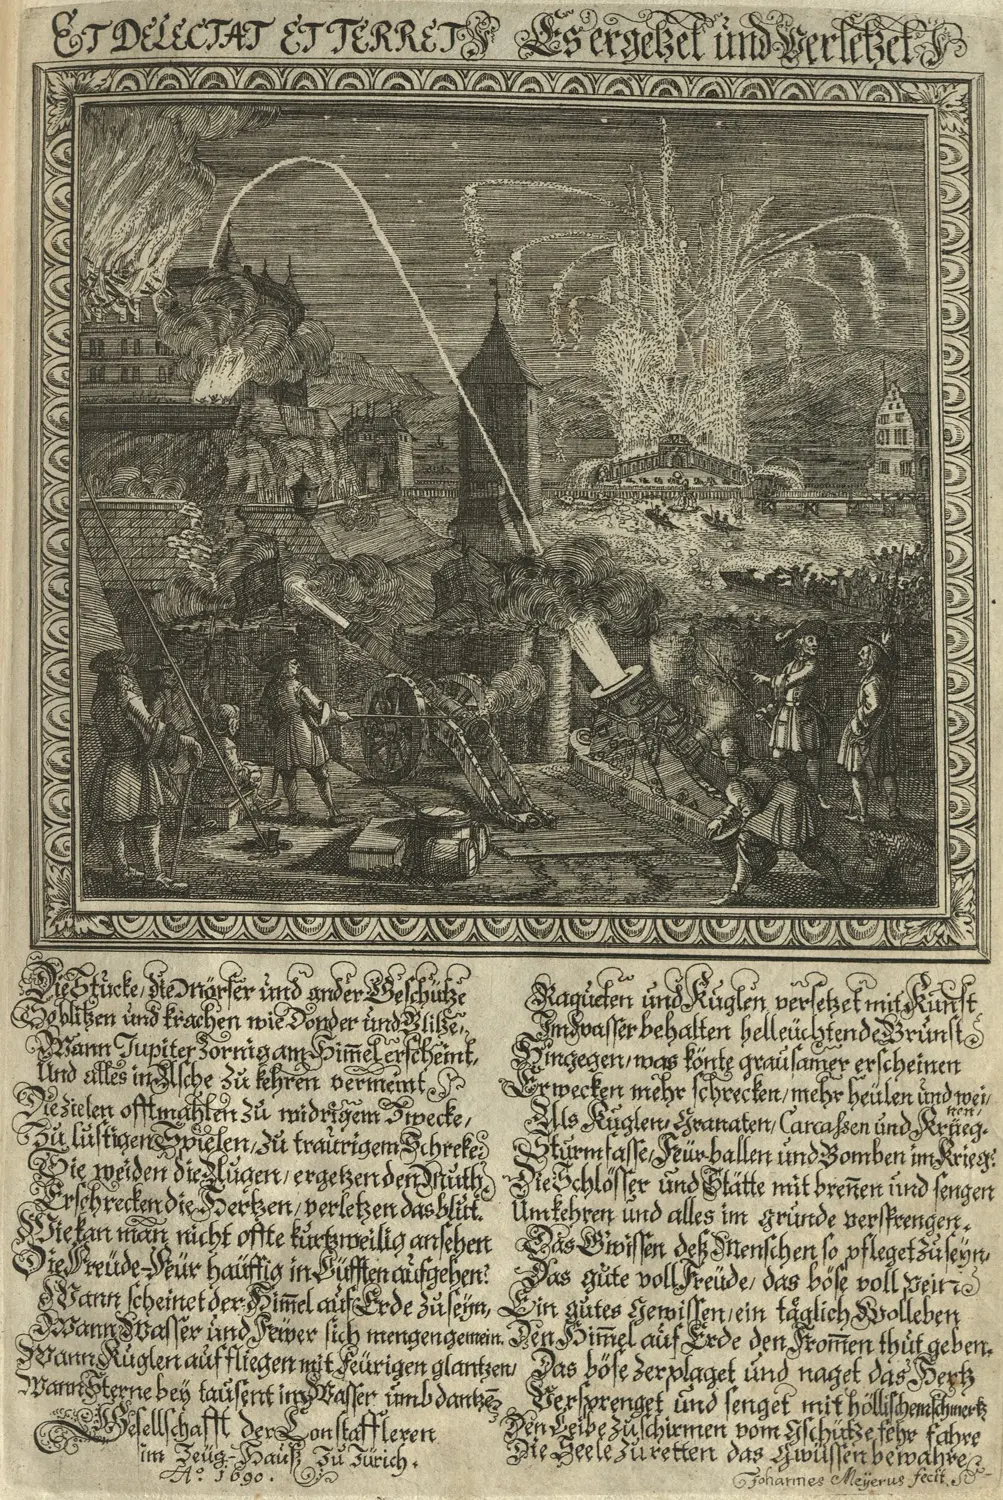 ET DELECTAT ET TERRET
Es ergetzet und Verletzet
Die Stücke, die Mörser und ander Geschütze
So blitzen und krachen wie Donder und Blitze,
Wann Jupiter zornig am Him̄el erscheint,
Und alles in Asche zu kehren vermeint.
Die zielen offtmahlen zu widrigem Zwecke,
Zu lustigen Spielen, zu traurigem Schreke;
Sie weiden die Augen, ergetzen den Muth,
Erschrecken die Hertzen, verletzen das blut.
Wie kan man nicht offte kurtzweilig ansehen
Die Freude-Feür häuffig in Lüfften aufgehen?
Wann scheinet der Him̄el auf Erde zu seyn,
Wann Wasser und Fewer sich mengen gemein.
Wann Kuglen auffliegen mit feürigen glantzen,
Wann Sterne bey tausent im Wasser umb dantzen
Gesellschafft der Constaffleren
im Zeüg-Hauß Zu Zürich.
Aº. 1690.
Raqueten und Kuglen versetzet mit Kunst
Im Wasser behalten helleüchtende Brunst
Hingegen, was könte grausamer erscheinen
Erwecken mehr schrecken, mehr heülen und wei,
nen,
Als Kuglen, Granaten, Carcassen und Krüeg,
Sturmfasse, Feür-ballen und Bomben im Krieg?
Die Schlösser und Stätte mit breñen und sengen
Umkehren und alles im grunde versprengen.
Das Gwissen deß Menschen so pfleget zu seyn,
Das gute voll Freude, das böse voll Pein
Ein gutes Gewissen, ein täglich Wolleben
Den Him̄el auf Erde den From̄en thut geben.
Das böse zerplaget und naget das Hertz
Versprenget und senget mit höllischem schmertz
Den Leibe zu schirmen vom Gschütze fehr fahre
Die Seele zu retten das Gwüssen bewahre
Johannes Meyerus fecit.